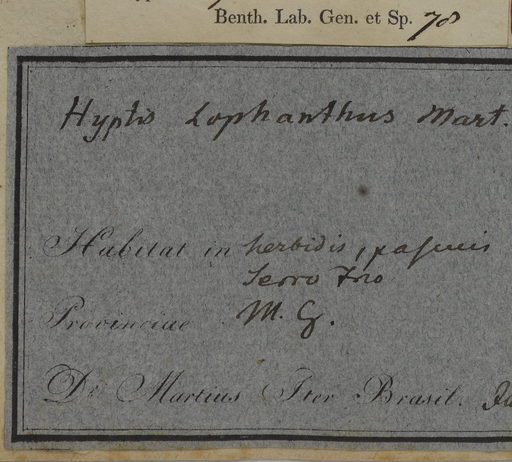 Benth. Lab. Gen. et Sp. 78
Hyptis Lophanthus Mart.
Habitat in herbidis, pascuis
Serro Frio
Provinciae M. G.
Dr Martius Iter Brasil.